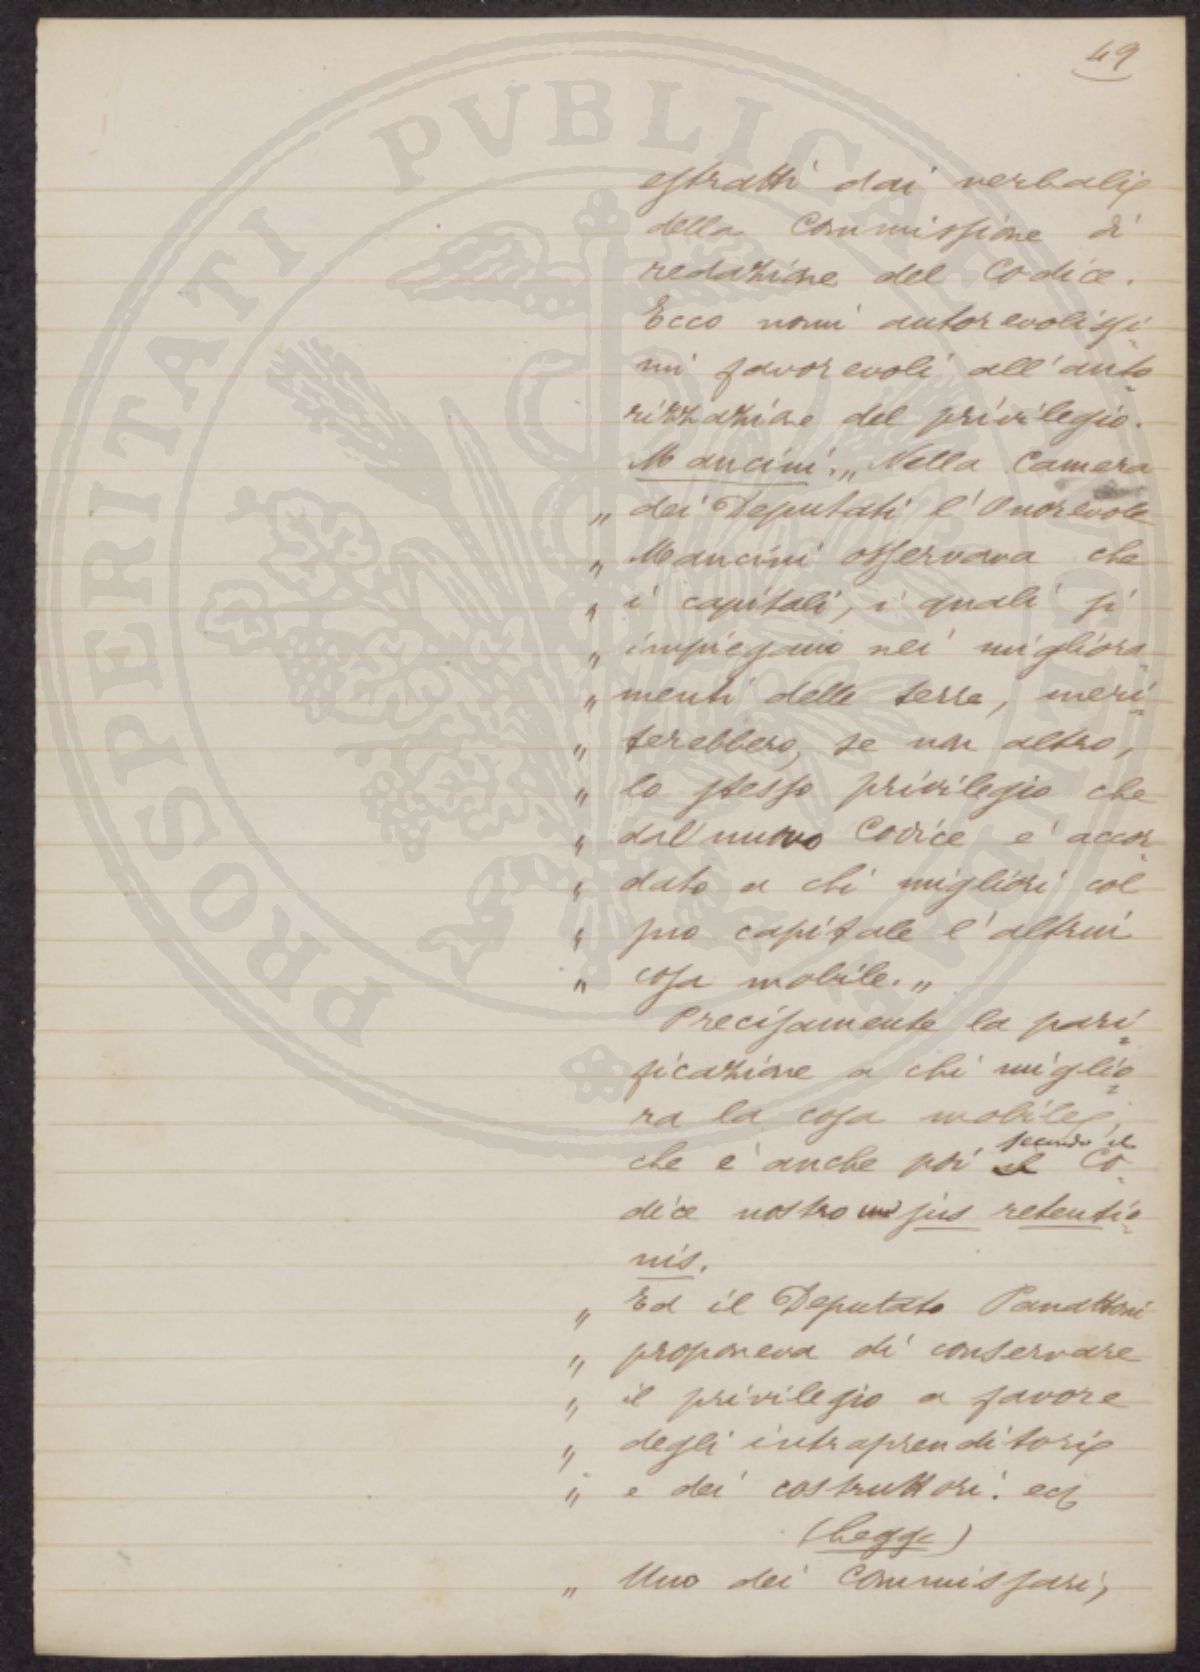 49
estratti dai verbali
della Commissione di
redazione del Codice.
Ecco nomi autorevolissi=
mi favorevoli all'auto=
rizzazione del privilegio.
Mancini: „ Nella Camera
„ dei Deputati l'Onorevole
„ Mancini osservava che
„ i capitali, i quali si
„ impiegano nei migliora=
„ menti delle terre, meri=
„ terebbero, se non altro,
„ lo stesso privilegio che
„ dal nuovo Codice è accor=
„ dato a chi migliori col
„ pro capitale l'altrui
„ cosa mobile. „
Precisamente la pari=
ficazione a chi miglio=
ra la cosa mobile,
secondo il
che è anche poi Co=
dice nostro un jus retentio=
nis.
„ Ed il Deputato Panattoni
„ proponeva di conservare
„ il privilegio a favore
„ degli intraprenditori
„ e dei costruttori. ecc
(Legge)
„ Uno dei Commissari,
PROSPERITATI PVBLICAE